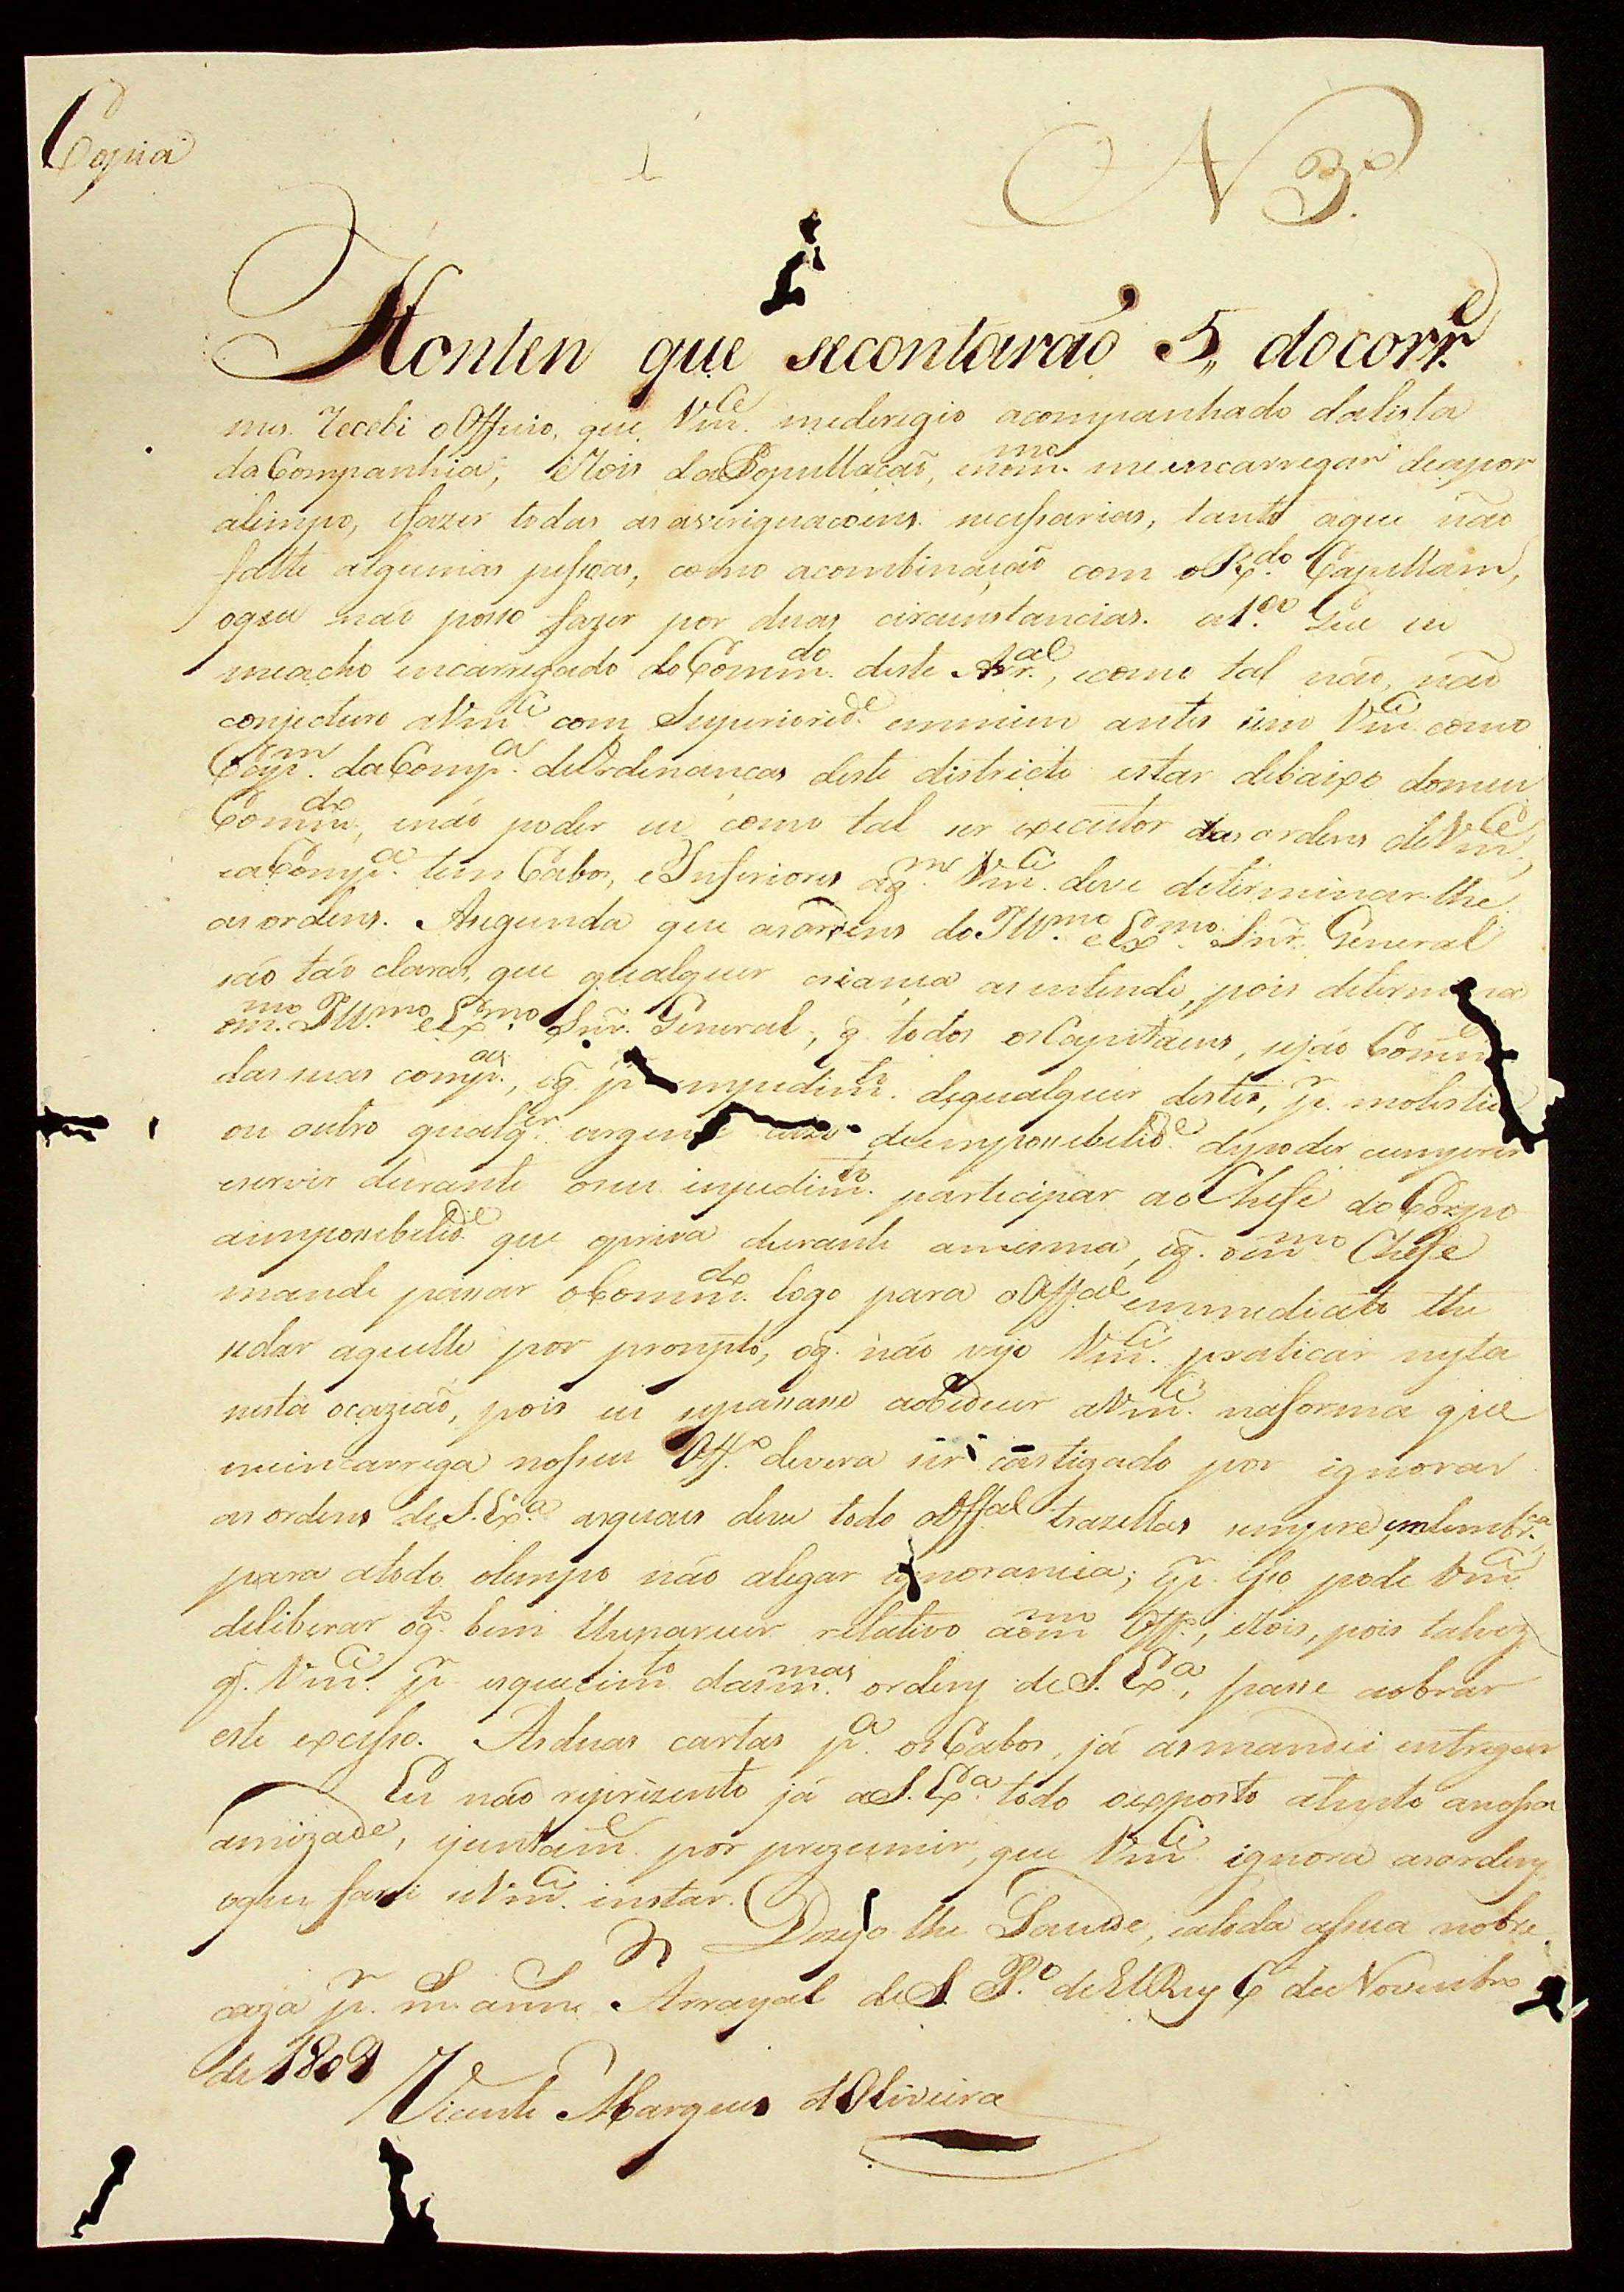 Copia
N 3º
Honten que secontaraõ 5,, docorr.e
mes. Recebi o Officio, que Vm.ce mederegio acompanhado dalista
da Companhia, e Rois da Popullacaõ, enom.mo meencarregar deapor
alimpo, efazer todas as averiguacoens necessarias, tanto aque naõ
falte algumas pessoas, como acombinaçaõ com oR.do Capellam,
oque naõ posso fazer por duas circunstancias. a1.ª Que eu
meacho encarregado do Comm.do deste Arr.al, ecomo tal naõ, naõ
conjecturo aVm.ce com Superiorid.e emmim antes sim Vm.ce como
Cap.m da Comp.a deOrdenancas deste districto estar debaixo domeu
Comm.do, enaõ poder eu como tal ser executor das ordens deVm.ce,
eaComp.a tem Cabos, eInferiores aq.m Vm.ce deve determinar-lhe
as ordens. Asegunda que asordens do Ill.mo eEx.mo Snr. General
saõ taõ claras, que qualquer crianca as entende, pois determina
om.mo Ill.mo eEx.mo Snr. General, q. todos osCapitaens, sejaõ Comm.es
das suas comp.as, eq. p.r impedim.to dequalquer destes, p.r molestia
ou outro qualq.er urgente cazo deimpossebelid.e depoder cumprir
eservir durante oseu inpedim.to participar ao Chefe do Corpo
aimpossebelid.e que opriva durante amesma, eq. om.mo Chefe
mande passar oComm.do logo para oOff.al emmediato the
sedar aquelle por prompto, oq. naõ vejo Vm.ce praticar nesta
nesta ocaziaõ, pois eu sepassasse aobedecer aVm.ce naforma que
meencarrega noseu Off.o devera ser castigado por ignorar
as ordens de S. Ex.a asquais deve todo oOff.al trazellas sempre emlembr.ca
para atodo otempo naõ alegar ignorancia; ep.r isso pode Vm.ce
deliberar oq.to bem lheparecer relativo aom.mo Off.o, eRois, pois talvez
q. Vm.ce p.r esquecim.to dasm.mas ordens de S. Ex.a, passe aobrar
este excesso. Asduas cartas p.a os Cabos, já asmandei entregar
Eu naõ reprizento já aS. Ex.a todo oexposto atento anossa
amizade, ejuntam.e por prezumir, que Vm.ce ignora asordens,
oque farei seVm.ce instar.
Dezejo lhe Saude, eatoda asua nobre
caza p.r m. annos Arrayal de S. P.o de El Rey 6 de Novembro
de 1809
Vicente Marques d'Oliveira